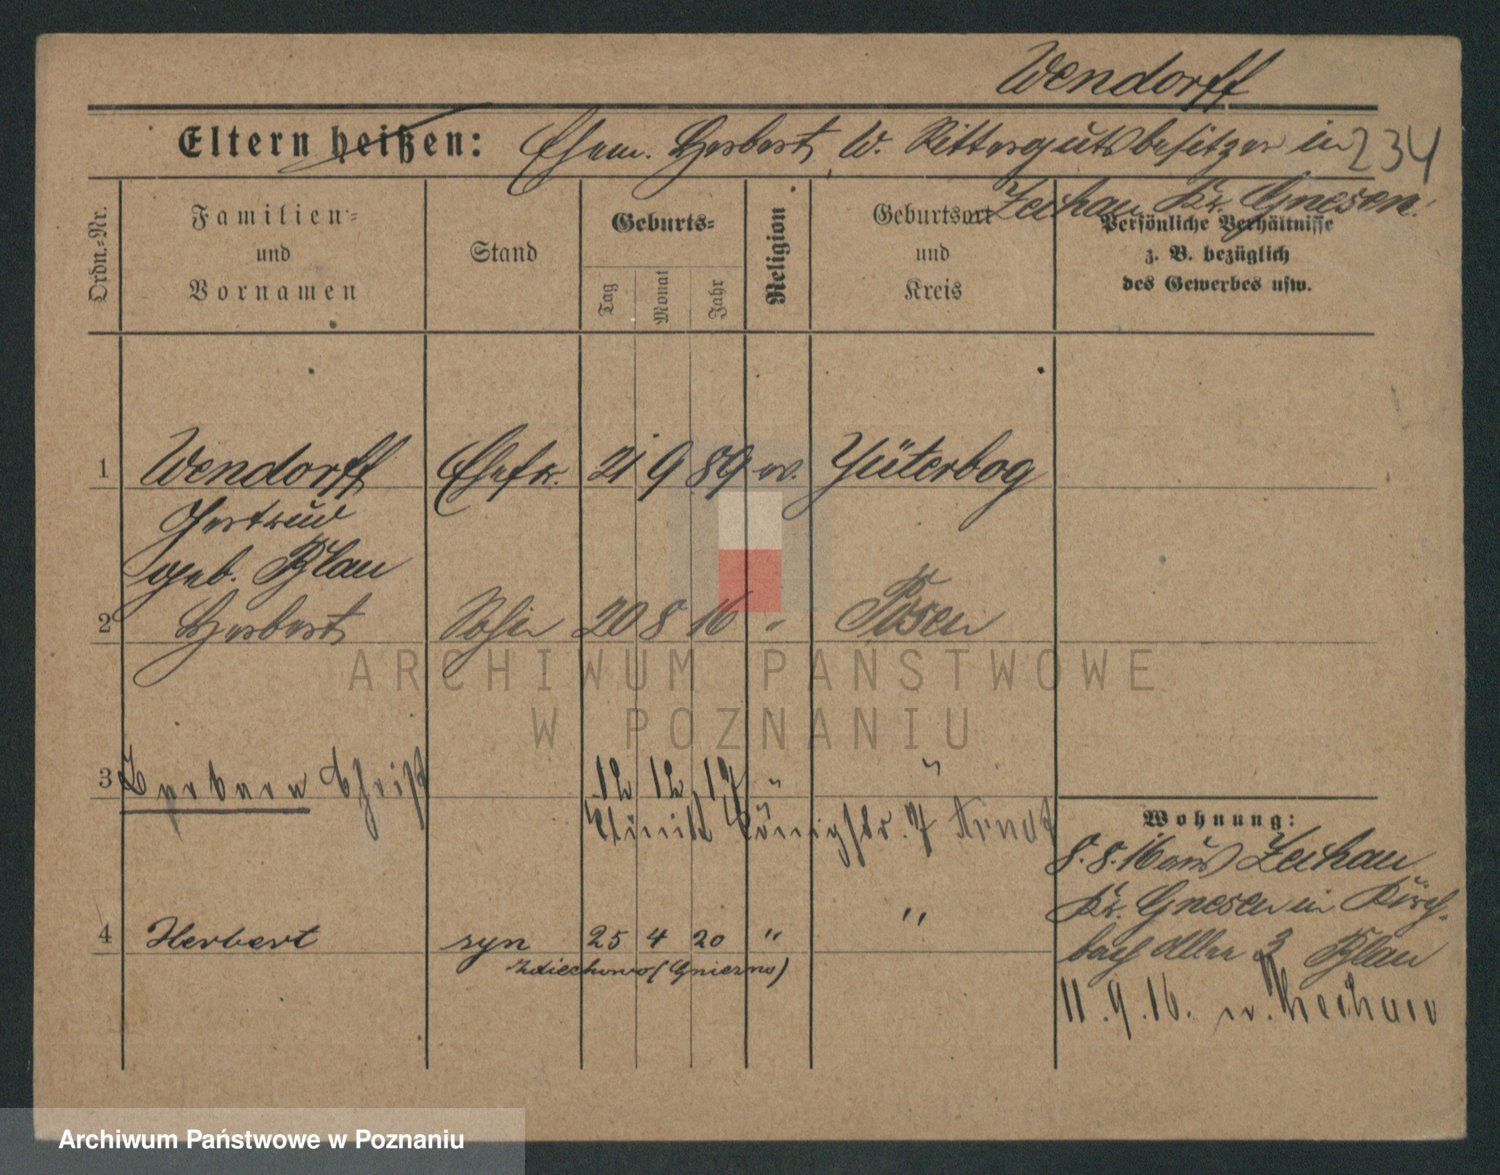 Wendorff
Eltern heißen: Ehem. Herbert W. Rittergutsbesitzer in
234
Zechau Kr. Gnesen.
Ordn.-Nr.
Familien-
und
Vornamen
Stand
Geburts-
Tag
Monat
Jahr
Religion
Geburtsort
und
Kreis
Persönliche Verhältnisse
z. B. bezüglich
des Gewerbes usw.
1 Wendorff Ehefr. 21 9 89 ev. Jüterbog
Gertrud
geb. Blau
2 Herbert Sohn 20 8 16 " Posen
ARCHIWUM PAŃSTWOWE
W POZNANIU
3 12 12 17 " "
Klinik Königstr. 7
Wohnung:
8.8.16 aus Zechau
Kr. Gnesen in Kirch-
bach Allee 3 Blau
4 Herbert syn 25 4 20 " "
Zdiechowo (Gniezno)
11.9.16. n. Zechau
Archiwum Państwowe w Poznaniu